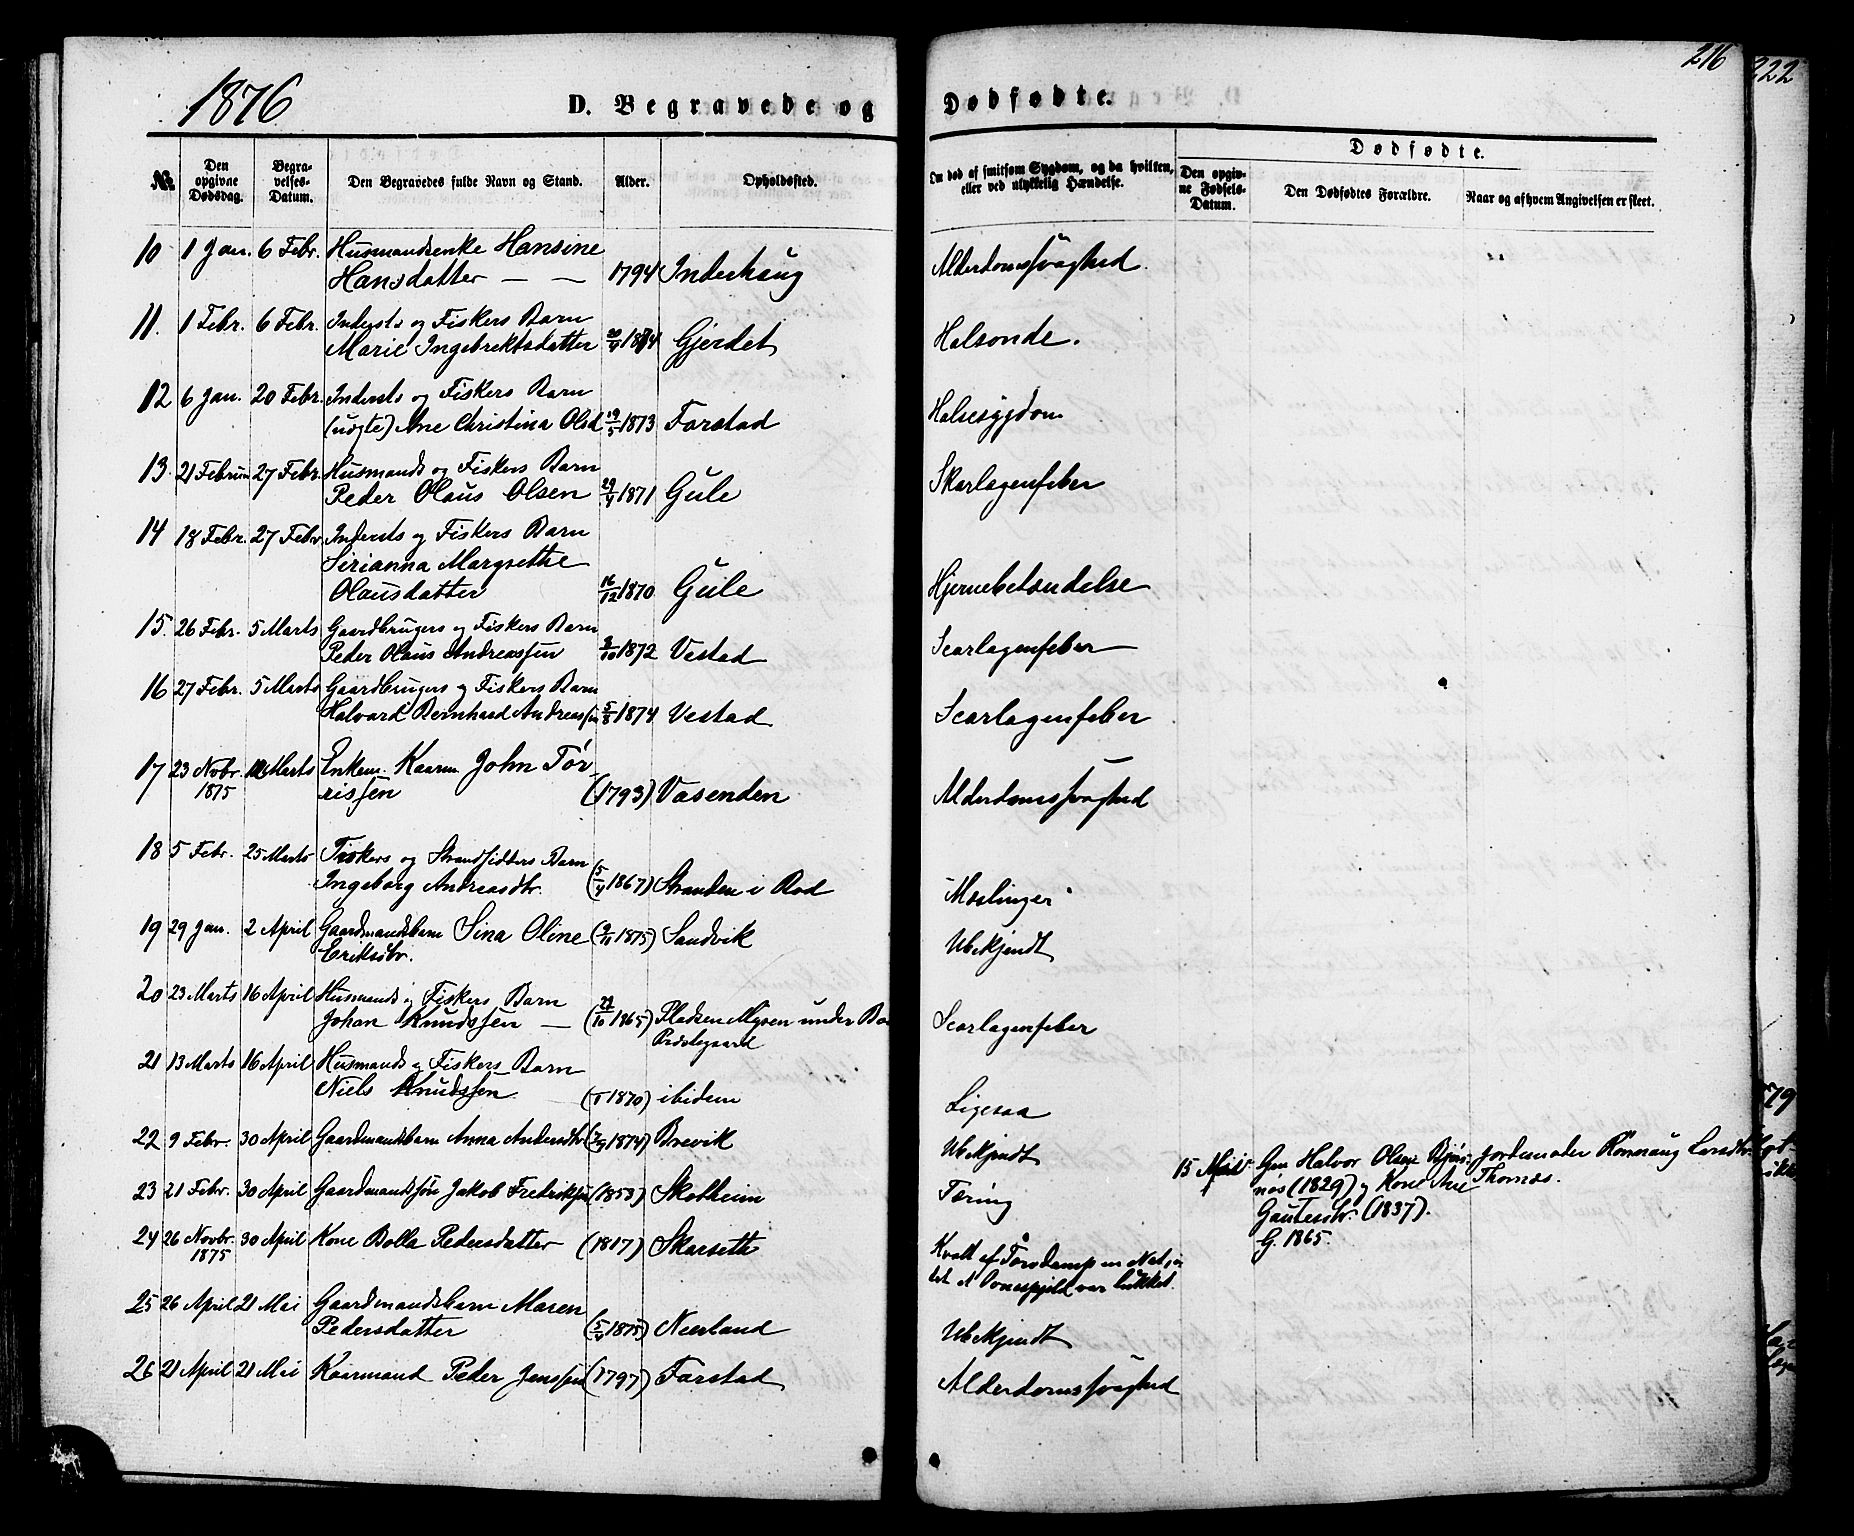 1876
D. Begravede og Dødfødte.
216
222
Nr.
Den opgivne Dødsdag.
Begravelses-Datum.
Den Begravedes fulde Navn og Stand.
Alder.
Opholdssted.
Om død af smitsom Sygdom, og da hvilken,
eller ved ulykkelig Hændelse.
Dødfødte.
Den opgivne Fødsels-Datum.
Den Dødfødtes Forældre.
Naar og af hvem Angivelsen er skeet.
10 1 Jan. 6 Febr. Husmandsenke Hansine
Hansdatter — — 1794 Inderhaug Alderdomssvaghed.
11. 1 Febr. 6 Febr. Indersts og Fiskers Barn
Marie Ingebrektsdatter 1874 Gjerdet Halsonde.
12 6 Jan. 20 Febr. Indersts og Fiskers Barn
(uægte) Ane Christina Olsd 19/5 1873 Farstad Halssygdom
13. 21 Februar 27 Febr. Husmands og Fiskers Barn
Peder Olaus Olsen 29/4 1871 Gule Skarlagenfeber
14 18 Febr. 27 Febr Indersts og Fiskers Barn
Sirianna Margrethe
Olausdatter 16/12 1870 Gule Hjernebetændelse
15. 26 Febr. 5 Marts Gaardbrugers og Fiskers Barn
Peder Olaus Andreassen 3/10 1872 Vestad Scarlagenfeber
16 27 Febr. 5 Marts Gaardbrugers og Fiskers Barn
Halvard Bernhard Andreassen 5/8 1874 Vestad Scarlagenfeber
17 23 Novbr. 1875 Marts Enkem. Kaarm. John Tør-
rissen (1793) Vasenden Alderdomssvaghed
18 5 Febr. 25 Marts Fiskers og Strandsidders Barn
Ingeborg Andreasdtr. (5/4 1867) Stranden i Rod Mæslinger
19 29 Jan. 2 April Gaardmandsbarn Sina Oline
Eriksdtr. (9/11 1875) Sandvik Ubekjendt
20 23 Marts 16 April Husmands og Fiskers Barn
Johan Knudssen — (22/10 1865) Pladsen Myren under Bo
Præstegaard Scarlagenfeber
21 13 Marts 16 April Husmands og Fiskers Barn
Niels Knudssen (1870) ibidem Ligesaa
22 9 Febr. 30 April Gaardmandsbarn Anna Andersdtr (7/9 1874) Brevik Ubekjendt
15 Mai Gm Halvor Olsen Bjør-
nøs (1829) og Kone Ane
Gautesdtr. (1837).
G. 1865.
Jordemoder Rønnaug Larsdtr.
Thornæs.
23 21 Febr. 30 April Gaardmandssøn Jakob Fredriksen (1850) Skotheim Tæring
24 26 Novbr. 1875 30 April Kone Bolla Pedersdatter (1817) Skarseth Kvalt af Torvdamp en Nat,
det et Ovnsspjeld var lukket.
25 26 April 21 Mai Gaardmandsbarn Maren
Pedersdatter (5/4 1875) Neerland Ubekjendt
26 21 April 21 Mai Kaarmand Peder Jenssen (1797) Farstad Alderdomssvaghed